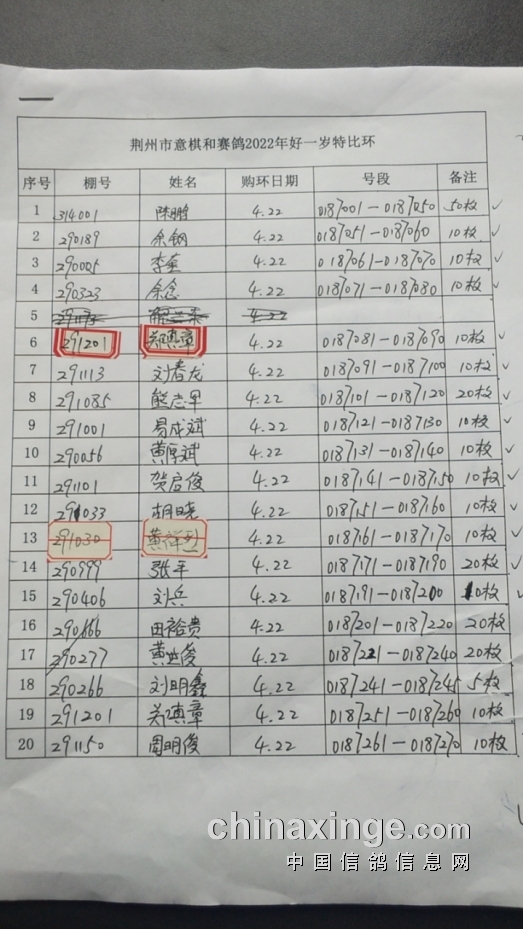 荆州市意棋和赛鸽2022年好一岁特比环
序号 棚号 姓名 购环日期 号段 备注
1 314001 陈鹏 4.22 0187001—0187050 50枚
2 290189 余钢 4.22 0187051—0187060 10枚
3 290005 李奎 4.22 0187061—0187070 10枚
4 290323 余念 4.22 0187071—0187080 10枚
5 4.22
6 291201 郑真章 4.22 0187081—0187090 10枚
7 291113 刘春龙 4.22 0187091—0187100 10枚
8 291085 熊志军 4.22 0187101—0187120 20枚
9 291001 易成斌 4.22 0187121—0187130 10枚
10 290056 黄厚斌 4.22 0187131—0187140 10枚
11 291101 贺启俊 4.22 0187141—0187150 10枚
12 291033 胡晓 4.22 0187151—0187160 10枚
13 291030 黄祥 4.22 0187161—0187170 10枚
14 290999 张平 4.22 0187171—0187190 20枚
15 290406 刘兵 4.22 0187191—0187200 10枚
16 290166 田裕贵 4.22 0187201—0187220 20枚
17 290277 黄世俊 4.22 0187221—0187240 20枚
18 290266 刘明鑫 4.22 0187241—0187245 5枚
19 291201 郑真章 4.22 0187251—0187260 10枚
20 291150 周明俊 4.22 0187261—0187270 10枚
chinaxinge.com
中国信鸽信息网